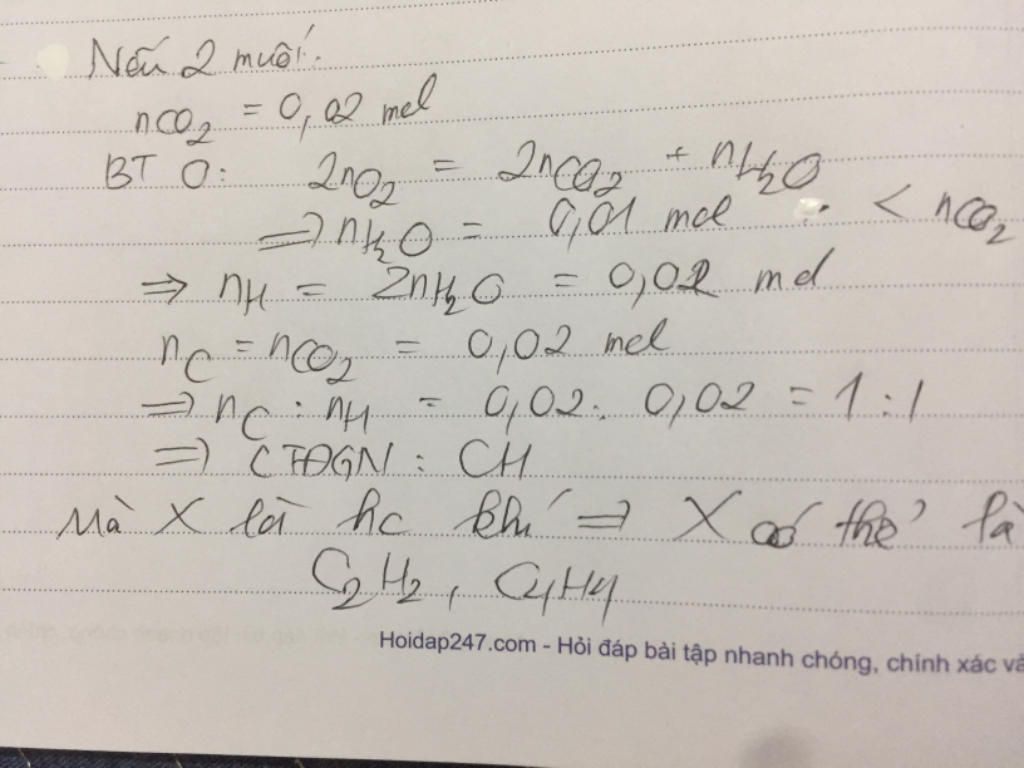 Nếu 2 muối:
nCO₂ = 0,02 mol
BT O: 2nO₂ = 2nCO₂ + nH₂O
⇒ nH₂O = 0,01 mol < nCO₂
⇒ nH = 2nH₂O = 0,02 mol
nC = nCO₂ = 0,02 mol
⇒ nC : nH = 0,02 : 0,02 = 1 : 1
⇒ CTĐGN : CH
Mà X là hc khí ⇒ X có thể là
C₂H₂, C₄H₄
Hoidap247.com - Hỏi đáp bài tập nhanh chóng, chính xác và